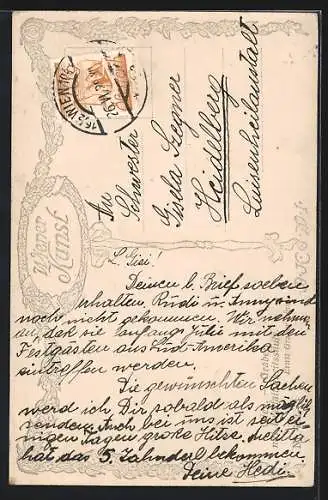 Wiener
Kunst
16/2 WIEN 103
An
Schwester
Gisela Szegner
Heidelberg
Luisenheilanstalt
L. Gisi!
Deinen l. Brief soeben
erhalten. Rudi u. Anny sind
noch nicht gekommen. Wir nehmen
an, daß sie anfangs Julie mit den
Festgästen aus Süd-Amerika
eintreffen werden.
Die gewünschten Sachen
werd ich Dir sobald als möglich
senden. Auch bei uns ist seit ei-
nigen Tagen große Hitze. Melitta
hat das 5. Zahnderl bekommen.
Deine Hedi.